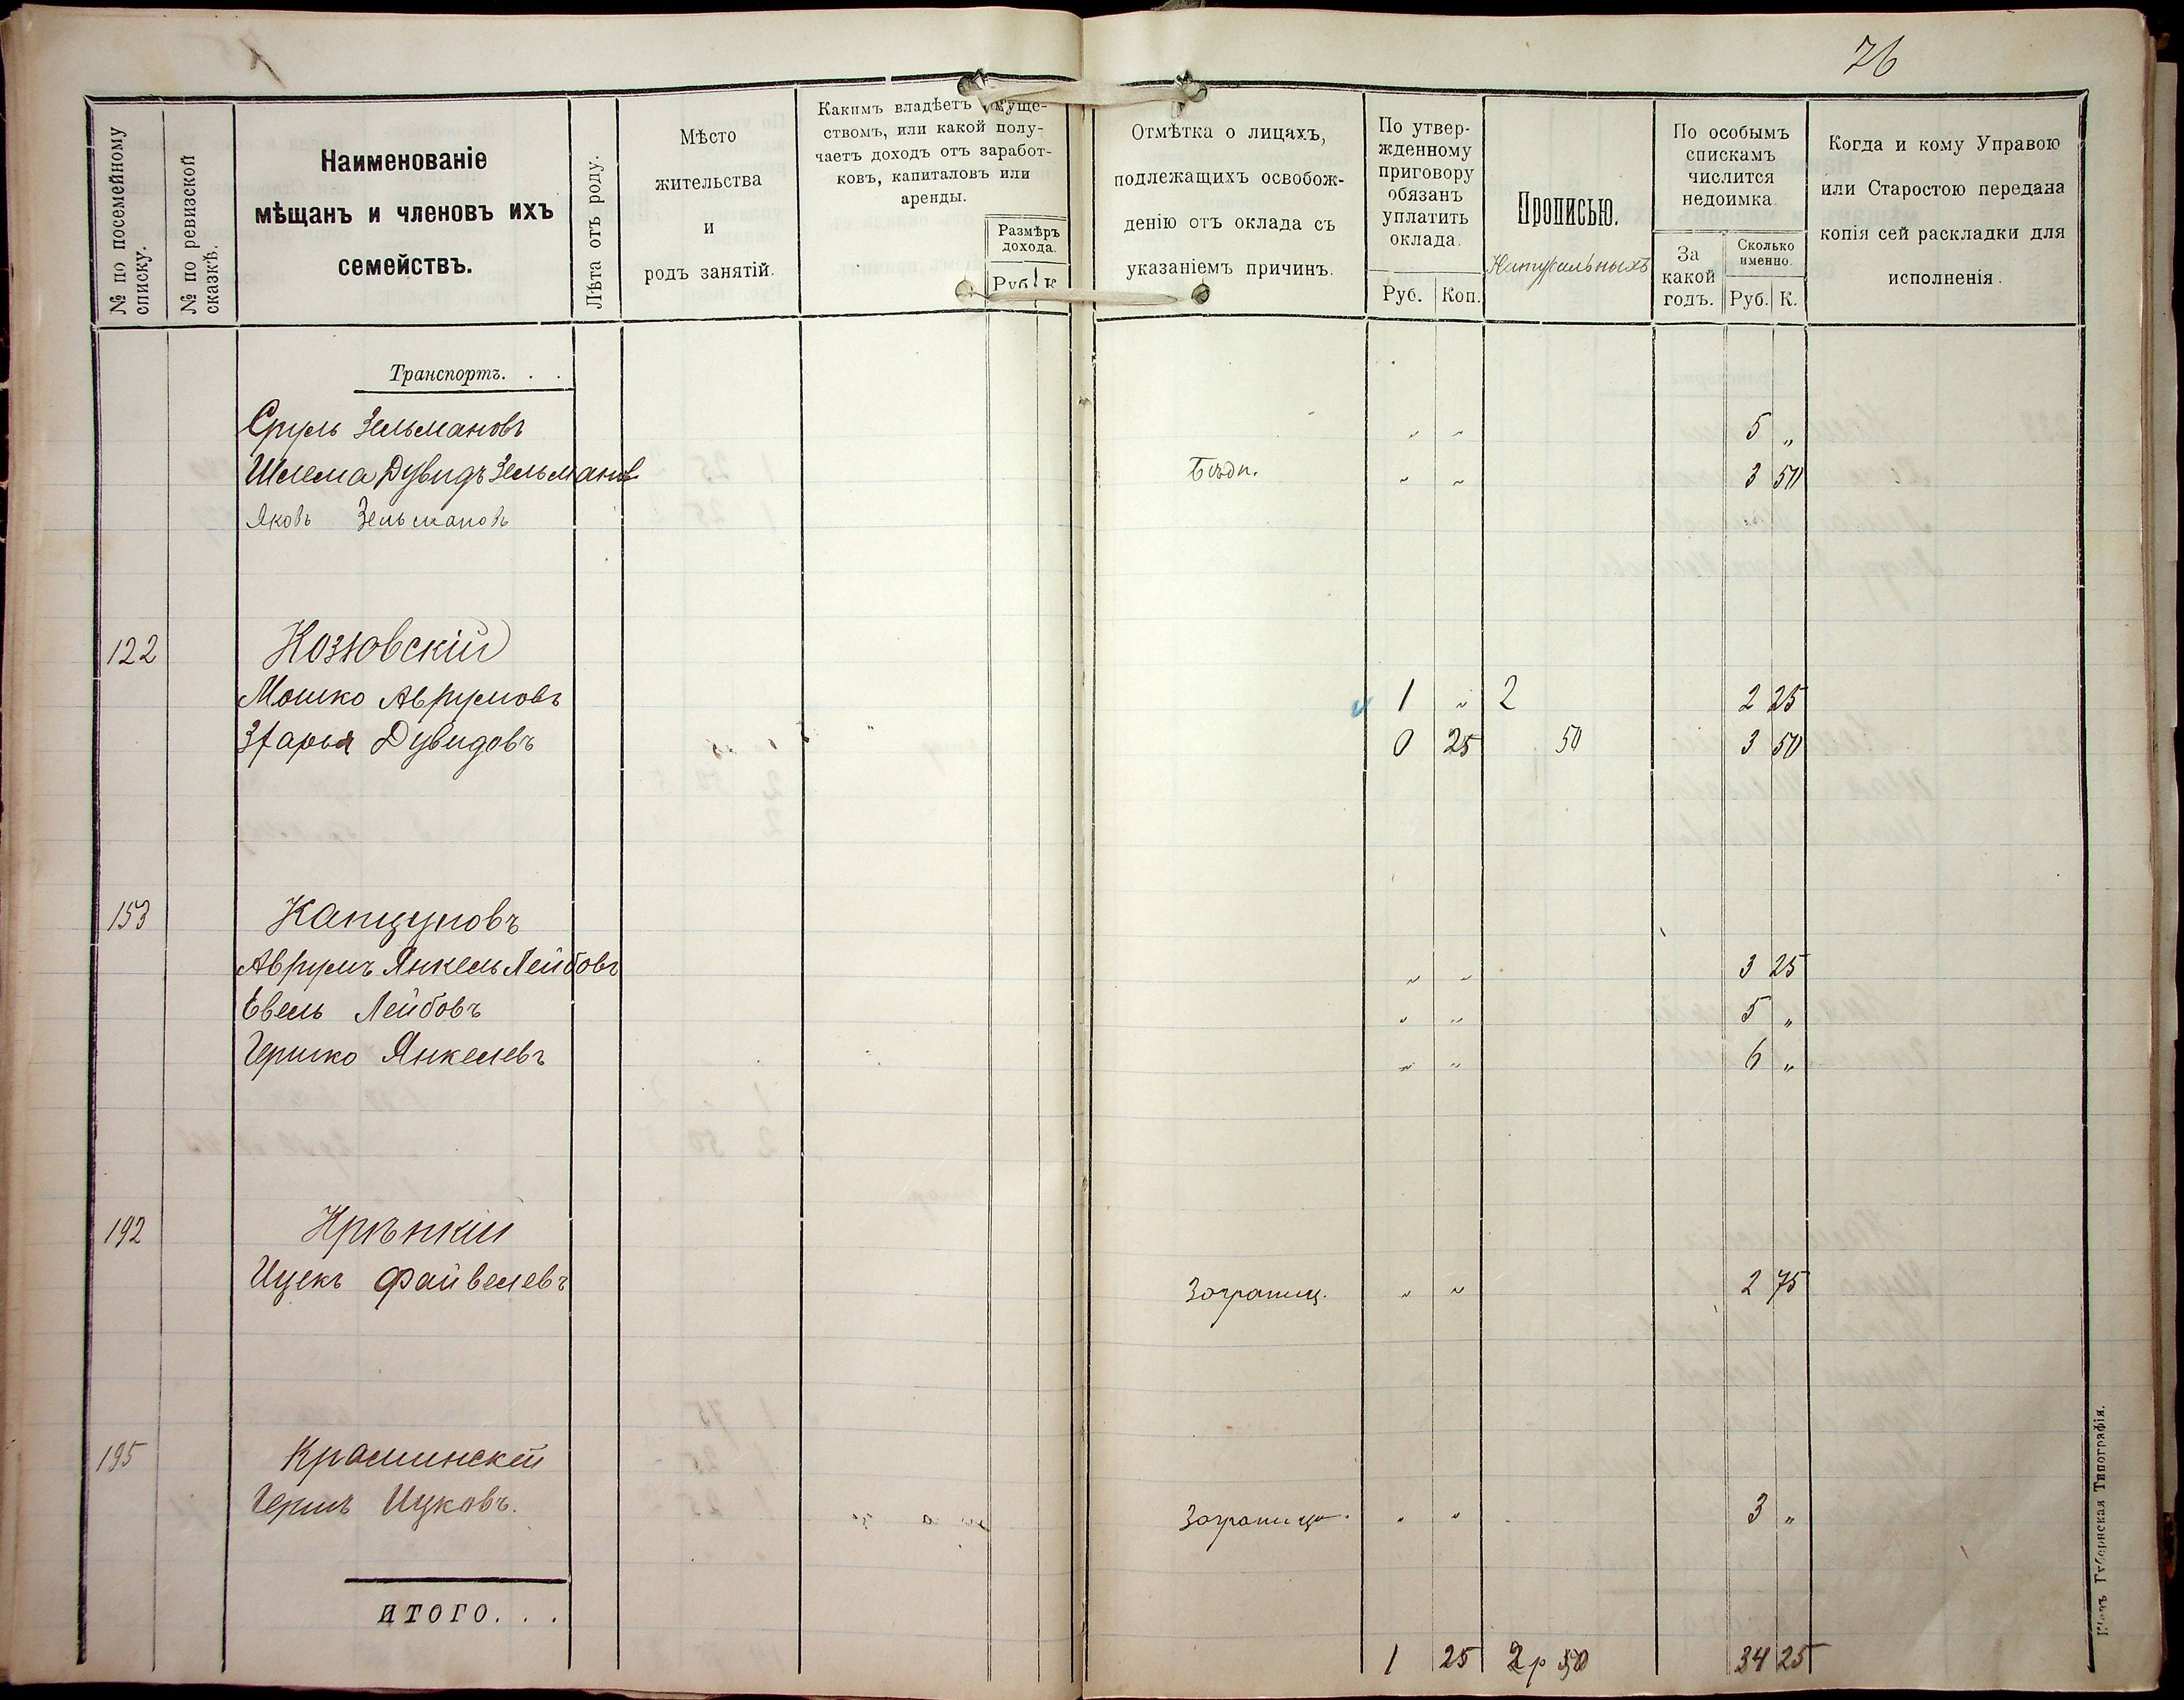 76
№ по посемейному списку.
№ по ревизской сказкѣ.
Наименованіе
мѣщанъ и членовъ ихъ
семействъ.
Лѣта отъ роду.
Мѣсто
жительства
и
родъ занятій.
Какимъ владѣетъ имуще-
ствомъ, или какой полу-
чаетъ доходъ отъ заработ-
ковъ, капиталовъ или
аренды.
Размѣръ
дохода.
Руб. К
Отмѣтка о лицахъ,
подлежащихъ освобож-
денію отъ оклада съ
указаніемъ причинъ.
По утвер-
жденному
приговору
обязанъ
уплатить
оклада.
Руб. Коп.
Прописью.
Натуральныхъ
По особымъ
спискамъ
числится
недоимка.
За
какой
годъ.
Сколько
именно.
Руб. К.
Когда и кому Управою
или Старостою передана
копія сей раскладки для
исполненія.
Транспортъ. . .
Сруль Зельмановъ " " 5 "
Шлема Дувидъ Зельманов Бѣдн. " " 3 50
Яковъ Зельмановъ
122 Козловскій
Мошко Аврумовъ 1 " 2 2 25
Дувидовъ 0 25 50 3 50
153 Капцуновъ
Аврумъ Янкель Лейбовъ " " 3 25
Евель Лейбовъ " " 5 "
Гершко Янкелевъ " " 6 "
192 Крѣпкій
Ицекъ Файвелевъ Заграниц. " " 2 75
195 Красинскій
Гершъ Ицковъ. Заграниц. " " 3 "
ИТОГО. . .
1 25 2 р 50 34 25
Кіевъ Губернская Типографія.